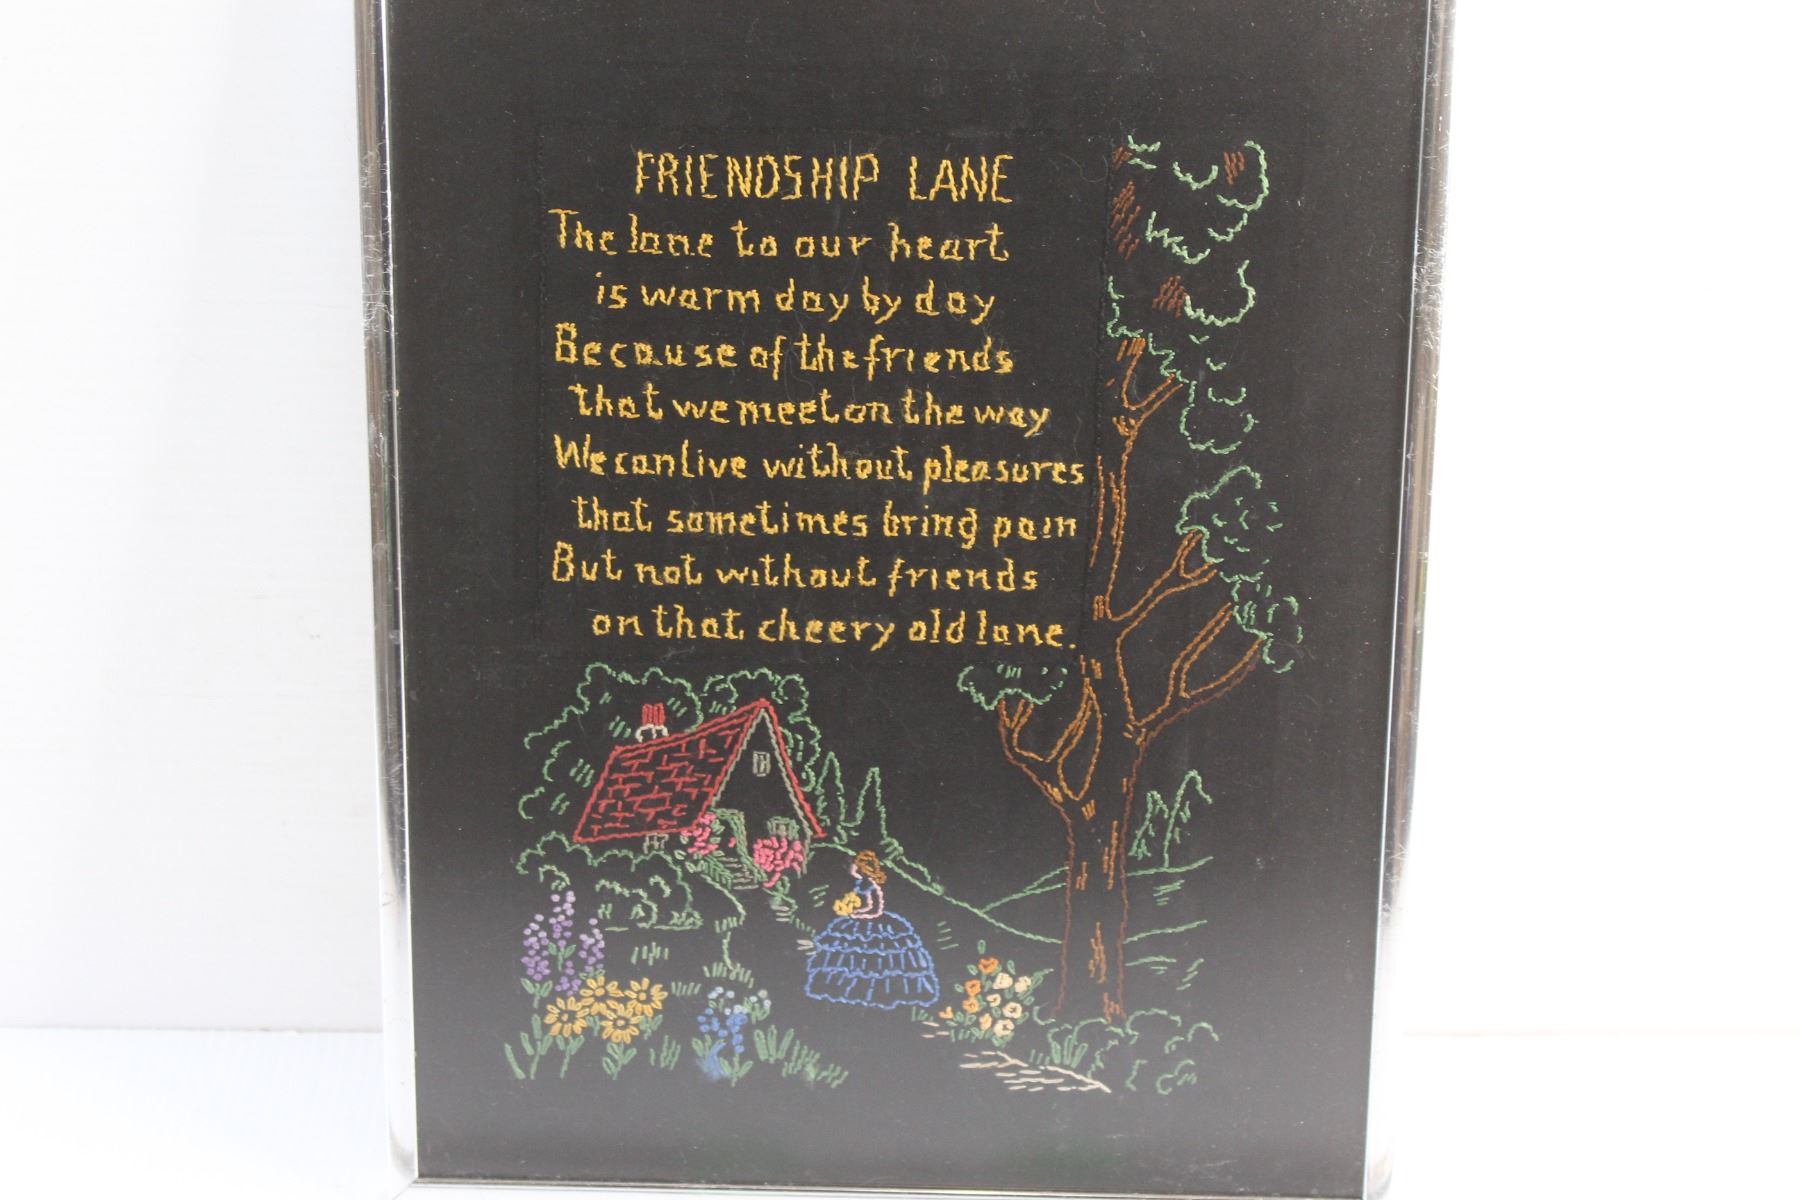 FRIENDSHIP LANE
The lane to our heart
is warm day by day
Because of the friends
that we meet on the way
We can live without pleasures
that sometimes bring pain
But not without friends
on that cheery old lane.